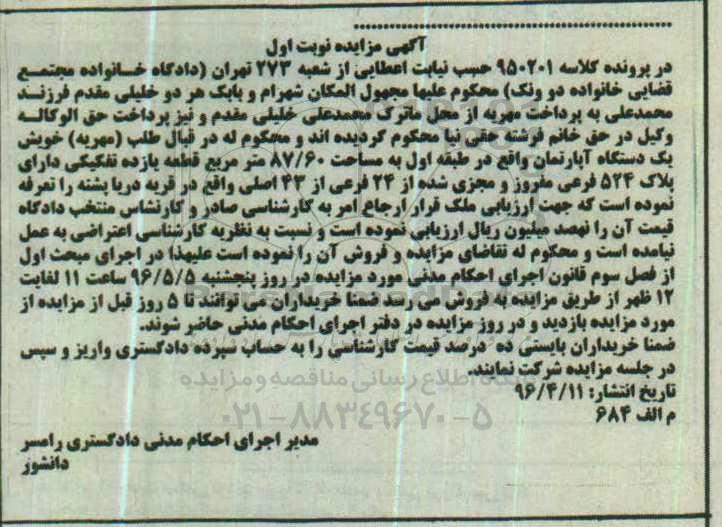 آگهی مزایده نوبت اول
در پرونده کلاسه ۹۵۰۲۰۱ حسب نیابت اعطایی از شعبه ۲۷۳ تهران (دادگاه خانواده مجتمع
قضایی خانواده دو ونک) محکوم علیها مجهول المکان شهرام و بابک هر دو خلیلی مقدم فرزند
محمدعلی به پرداخت مهریه از محل ماترک محمدعلی خلیلی مقدم و نیز پرداخت حق الوکاله
وکیل در حق خانم فرشته حقی نیا محکوم گردیده اند و محکوم له در قبال طلب (مهریه) خویش
یک دستگاه آپارتمان واقع در طبقه اول به مساحت ۸۷/۶۰ متر مربع قطعه یازده تفکیکی دارای
پلاک ۵۲۴ فرعی مفروز و مجزی شده از ۲۴ فرعی از ۴۳ اصلی واقع در قریه دریا پشته را تعرفه
نموده است که جهت ارزیابی ملک قرار ارجاع امر به کارشناسی صادر و کارشناس منتخب دادگاه
قیمت آن را نهصد میلیون ریال ارزیابی نموده است و نسبت به نظریه کارشناسی اعتراضی به عمل
نیامده است و محکوم له تقاضای مزایده و فروش آن را نموده است علیهذا در اجرای مبحث اول
از فصل سوم قانون اجرای احکام مدنی مورد مزایده در روز پنجشنبه ۹۶/۵/۵ ساعت ۱۱ لغایت
۱۲ ظهر از طریق مزایده به فروش می رسد ضمنا خریداران می توانند تا ۵ روز قبل از مزایده از
مورد مزایده بازدید و در روز مزایده در دفتر اجرای احکام مدنی حاضر شوند.
ضمنا خریداران بایستی ده درصد قیمت کارشناسی را به حساب سپرده دادگستری واریز و سپس
در جلسه مزایده شرکت نمایند.
اطلاع رسانی مناقصه و مزایده
تاریخ انتشار: ۹۶/۴/۱۱
۰۲۱-۸۸۳۴۹۶۷۰-۵
م الف ۶۸۴
مدیر اجرای احکام مدنی دادگستری رامسر
دانشور